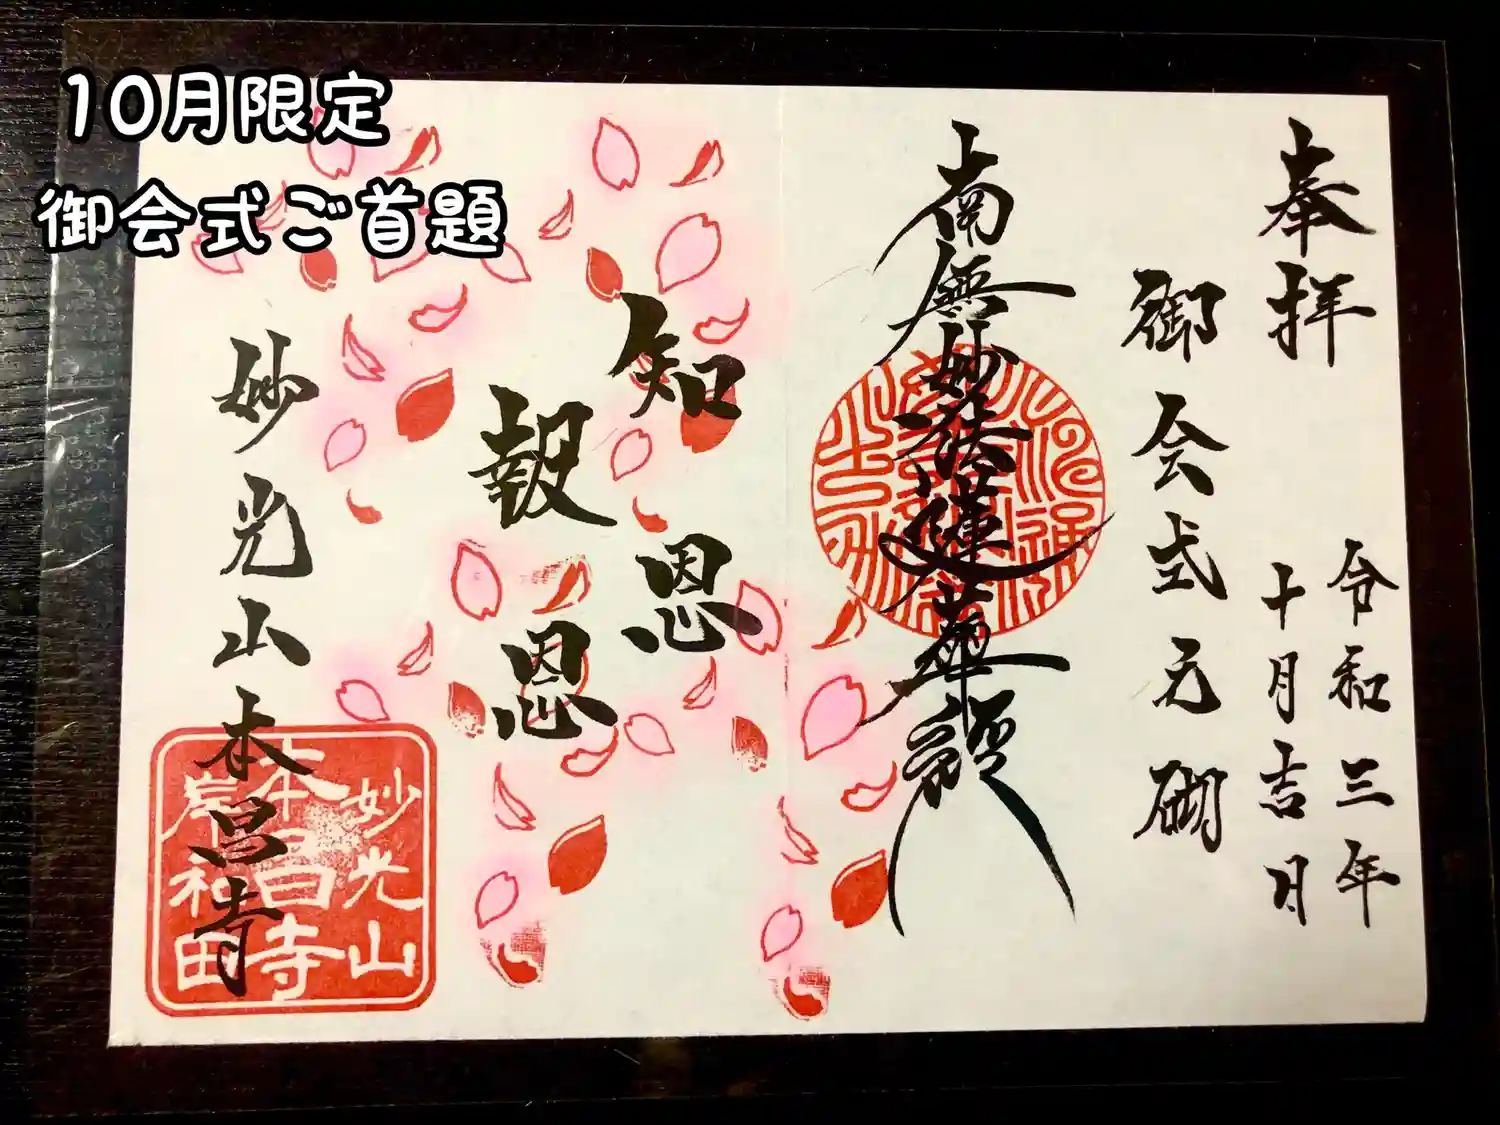 10月限定
御会式ご首題
奉拝
令和三年
十月吉月
御会式元朝
南無妙法蓮華経
知恩
報恩
妙光山
本昌寺
妙光山
本昌寺
岸和田